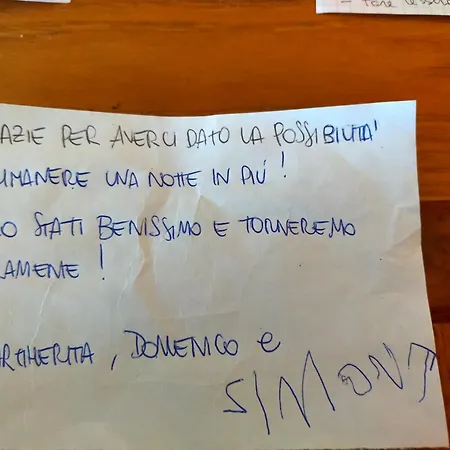 – fare
AZIE PER AVERCI DATO LA POSSIBILITA'
IMANERE UNA NOTTE IN PIÚ!
O STATI BENISSIMO E TORNEREMO
RAMENTE!
ARGHERITA, DOMENICO e
SIMONE